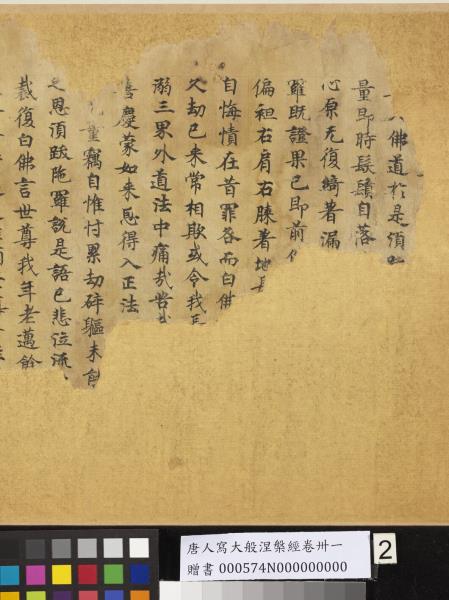 佛道於是須跋
量即時髮鬚自落
心原无復縛著漏
羅既證果已即前
偏袒右肩右膝著地長
自悔憤在昔罪咎而白佛
久劫已來常相欺或令我長
溺三界外道法中痛哉苦哉
喜慶蒙如來恩得入正法
量竊自惟忖累劫碎軀未能
之恩須跋陁羅說是語已悲泣流
裁復白佛言世尊我年老邁餘
唐人寫大般涅槃經卷卅一
贈書 000574N000000000
2